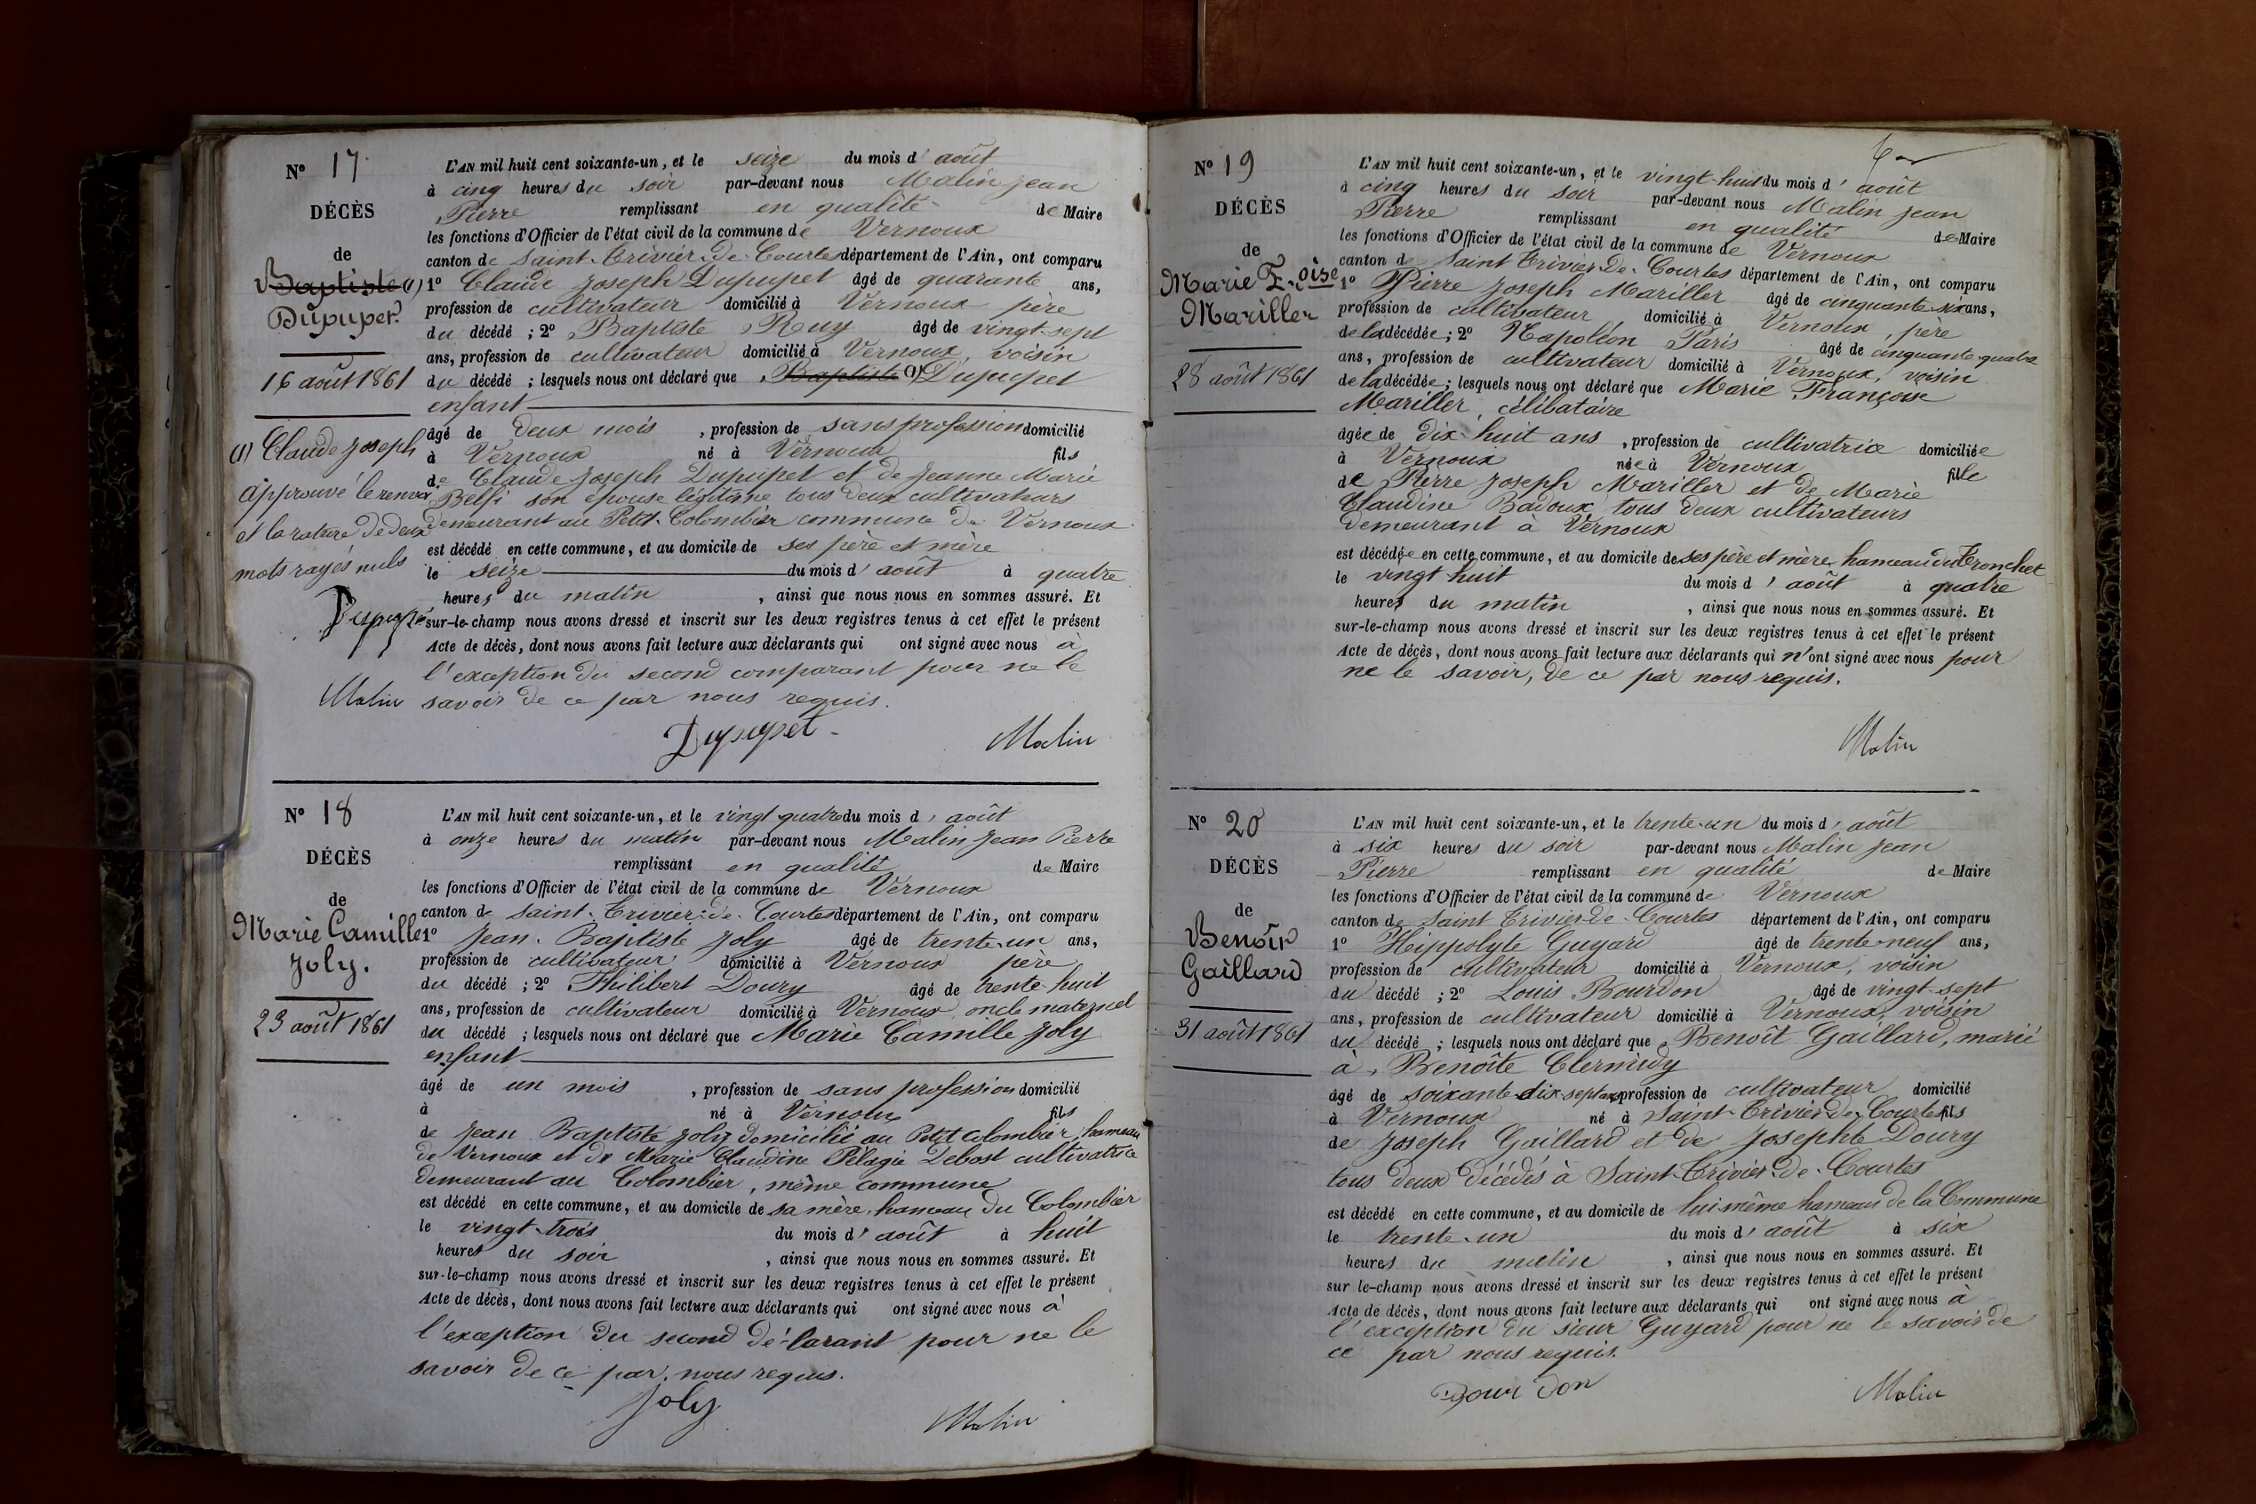 N° 17.
DÉCÈS
de
Baptiste (1)
Dupupet.
16 août 1861
(1) Claude Joseph
Approuvé le renvoi
et la rature de deux
mots rayés nuls
Dupupet
Malin
L'AN mil huit cent soixante-un, et le seize du mois d'août
à cinq heures du soir par-devant nous Malin Jean
Pierre remplissant en qualité de Maire
les fonctions d'Officier de l'état civil de la commune de Vernoux
canton de Saint-Trivier-de-Courtes département de l'Ain, ont comparu
1° Claude Joseph Dupupet âgé de quarante ans,
profession de cultivateur domicilié à Vernoux père
du décédé ; 2° Baptiste Ruy âgé de vingt-sept
ans, profession de cultivateur domicilié à Vernoux, voisin
du décédé ; lesquels nous ont déclaré que Baptiste (1) Dupupet
enfant
âgé de deux mois, profession de sans profession domicilié
à Vernoux né à Vernoux fils
de Claude Joseph Dupupet et de Jeanne Marie
Belfi son épouse légitime tous deux cultivateurs
demeurant au Petit-Colombier commune de Vernoux
est décédé en cette commune, et au domicile de ses père et mère
le seize du mois d'août à quatre
heures du matin, ainsi que nous nous en sommes assuré. Et
sur-le-champ nous avons dressé et inscrit sur les deux registres tenus à cet effet le présent
Acte de décès, dont nous avons fait lecture aux déclarants qui ont signé avec nous à
l'exception du second comparant pour ne le
savoir de ce par nous requis.
Dupupet Malin
N° 18
DÉCÈS
de
Marie Camille
Joly.
23 août 1861
L'AN mil huit cent soixante-un, et le vingt-quatre du mois d'août
à onze heures du matin par-devant nous Malin Jean Pierre
remplissant en qualité de Maire
les fonctions d'Officier de l'état civil de la commune de Vernoux
canton de Saint-Trivier-de-Courtes département de l'Ain, ont comparu
1° Jean-Baptiste Joly âgé de trente-un ans,
profession de cultivateur domicilié à Vernoux père
du décédé ; 2° Philibert Doury âgé de trente-huit
ans, profession de cultivateur domicilié à Vernoux, oncle maternel
du décédé ; lesquels nous ont déclaré que Marie Camille Joly
enfant
âgé de un mois, profession de sans profession domicilié
à né à Vernoux fils
de Jean Baptiste Joly domicilié au Petit Colombier, hameau
de Vernoux et de Marie Claudine Pélagie Debost cultivatrice
demeurant au Colombier, même commune
est décédé en cette commune, et au domicile de sa mère, hameau du Colombier
le vingt-trois du mois d'août à huit
heures du soir, ainsi que nous nous en sommes assuré. Et
sur-le-champ nous avons dressé et inscrit sur les deux registres tenus à cet effet le présent
Acte de décès, dont nous avons fait lecture aux déclarants qui ont signé avec nous à
l'exception du second déclarant pour ne le
savoir de ce par nous requis.
Joly Malin
N° 19
DÉCÈS
de
Marie F.oise
Mariller
28 août 1861
L'AN mil huit cent soixante-un, et le vingt-huit du mois d'août
à cinq heures du soir par-devant nous Malin Jean
Pierre remplissant en qualité de Maire
les fonctions d'Officier de l'état civil de la commune de Vernoux
canton de Saint Trivier-de-Courtes département de l'Ain, ont comparu
1° Pierre Joseph Mariller âgé de cinquante-six ans,
profession de cultivateur domicilié à Vernoux, père
de la décédée ; 2° Napoléon Paris âgé de cinquante-quatre
ans, profession de cultivateur domicilié à Vernoux, voisin
de la décédée ; lesquels nous ont déclaré que Marie Françoise
Mariller, célibataire
âgée de dix-huit ans, profession de cultivatrice domiciliée
à Vernoux née à Vernoux fille
de Pierre Joseph Mariller et de Marie
Claudine Badoux, tous deux cultivateurs
demeurant à Vernoux
est décédée en cette commune, et au domicile de ses père et mère, hameau du Tronchet
le vingt-huit du mois d'août à quatre
heures du matin, ainsi que nous nous en sommes assuré. Et
sur-le-champ nous avons dressé et inscrit sur les deux registres tenus à cet effet le présent
Acte de décès, dont nous avons fait lecture aux déclarants qui n'ont signé avec nous pour
ne le savoir, de ce par nous requis.
Malin
N° 20
DÉCÈS
de
Benoît
Gaillard
31 août 1861
L'AN mil huit cent soixante-un, et le trente-un du mois d'août
à six heures du soir par-devant nous Malin Jean
Pierre remplissant en qualité de Maire
les fonctions d'Officier de l'état civil de la commune de Vernoux
canton de Saint Trivier-de-Courtes département de l'Ain, ont comparu
1° Hippolyte Guyard âgé de trente-neuf ans,
profession de cultivateur domicilié à Vernoux, voisin
du décédé ; 2° Louis Bourdon âgé de vingt-sept
ans, profession de cultivateur domicilié à Vernoux, voisin
du décédé ; lesquels nous ont déclaré que Benoît Gaillard, marié
à Benoîte Clermidy
âgé de soixante-dix-sept ans, profession de cultivateur domicilié
à Vernoux né à Saint-Trivier-de-Courtes fils
de Joseph Gaillard et de Josephte Doury
tous deux décédés à Saint-Trivier-de-Courtes
est décédé en cette commune, et au domicile de lui même hameau de la Commune
le trente-un du mois d'août à six
heures du matin, ainsi que nous nous en sommes assuré. Et
sur le-champ nous avons dressé et inscrit sur les deux registres tenus à cet effet le présent
Acte de décès, dont nous avons fait lecture aux déclarants qui ont signé avec nous à
l'exception du sieur Guyard pour ne le savoir de
ce par nous requis.
Bourdon Malin